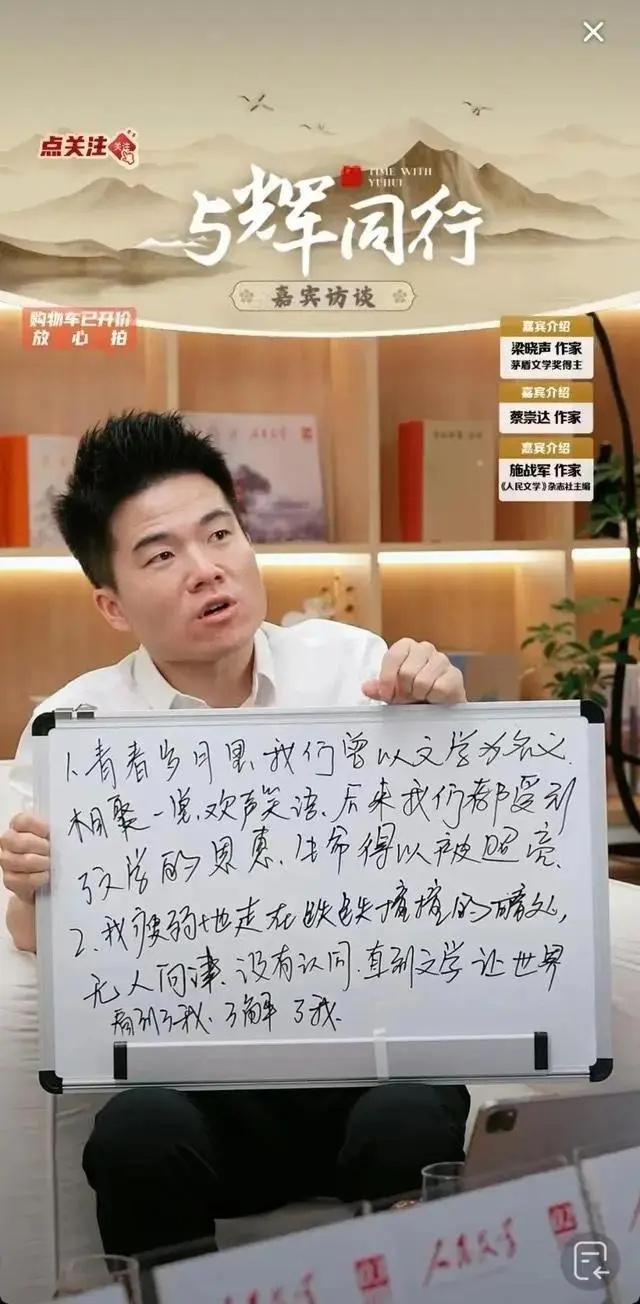 点关注
关注
TIME WITH
YUHUI
与辉同行
嘉宾访谈
购物车已开价
放心拍
嘉宾介绍
梁晓声 作家
茅盾文学奖得主
嘉宾介绍
蔡崇达 作家
嘉宾介绍
施战军 作家
《人民文学》杂志社主编
人民文学
1、青春岁月里、我们曾以文学为名义、
相聚一堂、欢声笑语、后来我们都受到
文学的恩惠、生命得以被照亮、
2、我疲弱地走在跌跌撞撞的暗处，
无人问津、没有认同、直到文学让世界
看到了我、了解了我、
人民文学